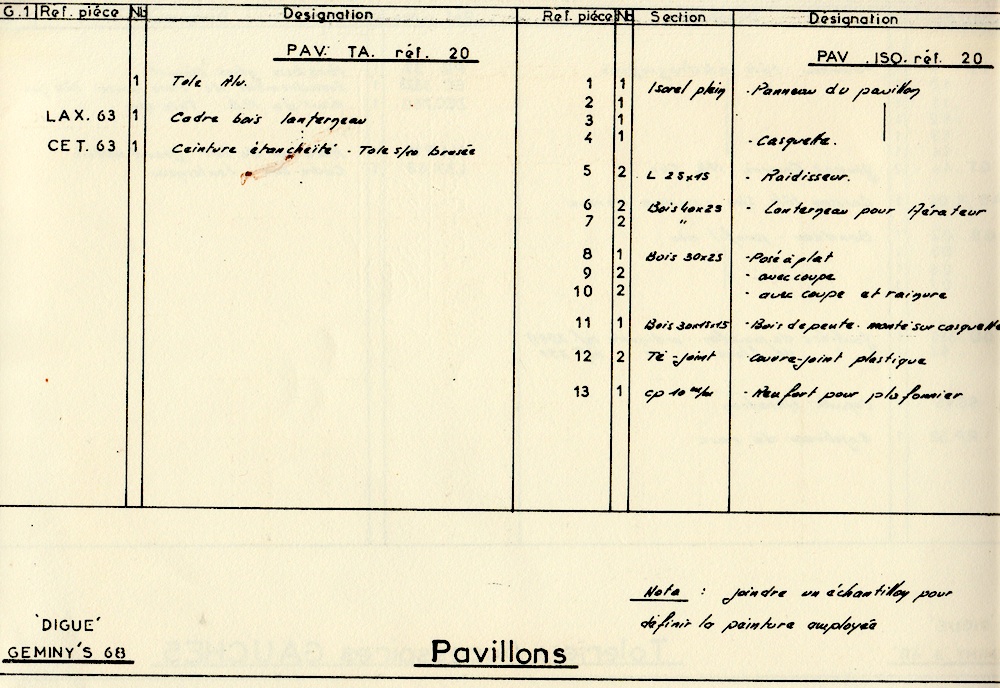 G.1 Ref. pièce Nb Désignation
PAV. TA. réf. 20
1 Tole Alu.
LAX. 63 1 Cadre bois lanterneau
CET. 63 1 Ceinture étancheité - Tole 5/10 brasée
Ref. pièce Nb Section Désignation
PAV . ISO. réf. 20
1 1 Isorel plein - Panneau du pavillon
2 1
3 1
4 1 - Casquette.
5 2 L 25x15 - Raidisseur.
6 2 Bois 40x25 - Lanterneau pour Aérateur
7 2 "
8 1 Bois 30x25 - Posé à plat
9 2 - avec coupe
10 2 - avec coupe et rainure
11 1 Bois 30x15x15 - Bois de pente - monté sur casquette
12 2 Té - Joint - couvre-joint plastique
13 1 cp 10 m/m - Renfort pour plafonnier
Nota : joindre un échantillon pour
définir la peinture employée
'DIGUE'
GEMINY'S 68
Pavillons